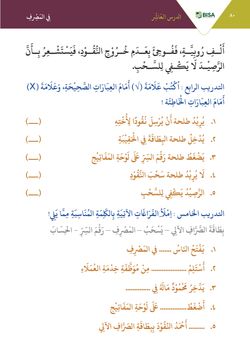 BISA الدرس العاشر في المصرف ٨٠
أَلْفِ رُوبِيَّةٍ، فَفُوجِئَ بِعَدَمِ خُرُوجِ النُّقُودِ، فَيَسْتَشْعِرُ بِأَنَّ
الرَّصِيدَ لَا يَكْفِي لِلسَّحْبِ.
التدريب الرابع : اُكْتُبْ عَلَامَةَ (√) أَمَامَ العِبَارَاتِ الصَّحِيْحَةِ، وَعَلَامَةَ (X)
أَمَامَ العِبَارَاتِ الْخَاطِئَةِ !
١. يُرِيْدُ طلحة أَنْ يُرْسِلَ نُقُودًا لِأُخْتِهِ (.....)
٢. يُدْخِلُ طلحة البِطَاقَةَ فِي الْحَقِيْبَةِ (.....)
٣. يَضْغَطُ طلحة رَقْمَ السِّرِّ عَلَى لَوْحَةِ الْمَفَاتِيْحِ (.....)
٤. يُرِيْدُ طلحة سَحْبَ النُّقُودِ (.....)
٥. الرَّصِيْدُ يَكْفِي لِلسَّحْبِ (.....)
التدريب الخامس : اِمْلَأِ الفَرَاغَاتِ الآتِيَةَ بِالكَلِمَةِ الْمُنَاسَبَةِ مِمَّا يَلِي!
بِطَاقَةُ الصَّرَّافِ الآلِي – يُسْحَبُ – الْمَصْرِفِ – رَقْمَ السِّرِّ - الْحِسَابَ
١. يَفْتَحُ النَّاسُ ...... فِي الْمَصْرِفِ
٢. أَسْتَلِمُ ............ مِنْ مُوَظَّفَةِ خِدْمَةِ العُمَلَاءِ
٣. يَدَّخِرُ مَحْمُودٌ مَالَهُ فِي ............
٤. أَضْغَطُ............ عَلَى لَوْحَةِ الْمَفَاتِيْحِ
٥. ...... أَحْمَدُ النُّقُوْدَ بِبِطَاقَةِ الصَّرَّافِ الآلِي